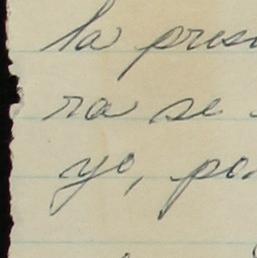 la pres
ra se
yo, po